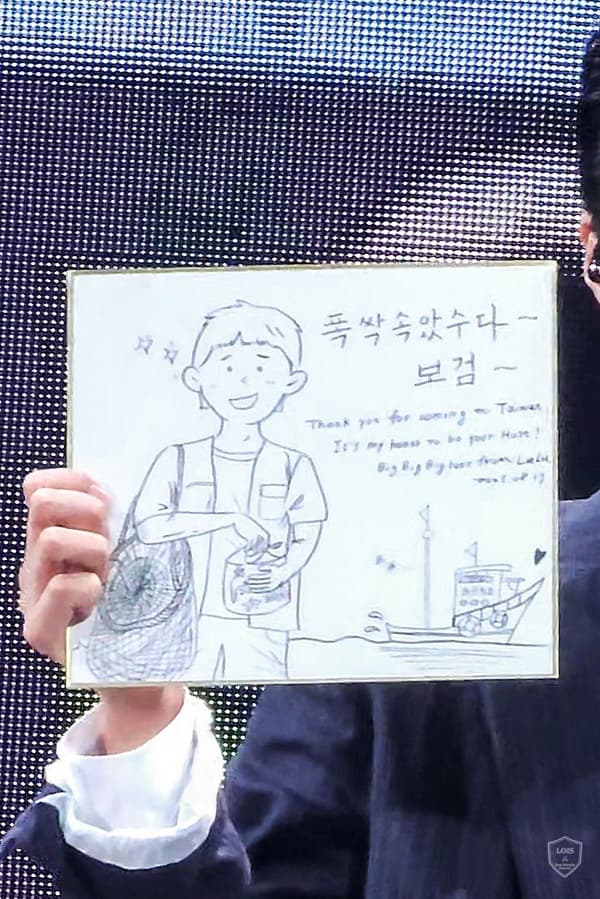 폭싹속았수다~
보검~
Thank you for coming to Taiwan,
It's my honor to be your Host!
Big Big Big love from Lulu
LOIS